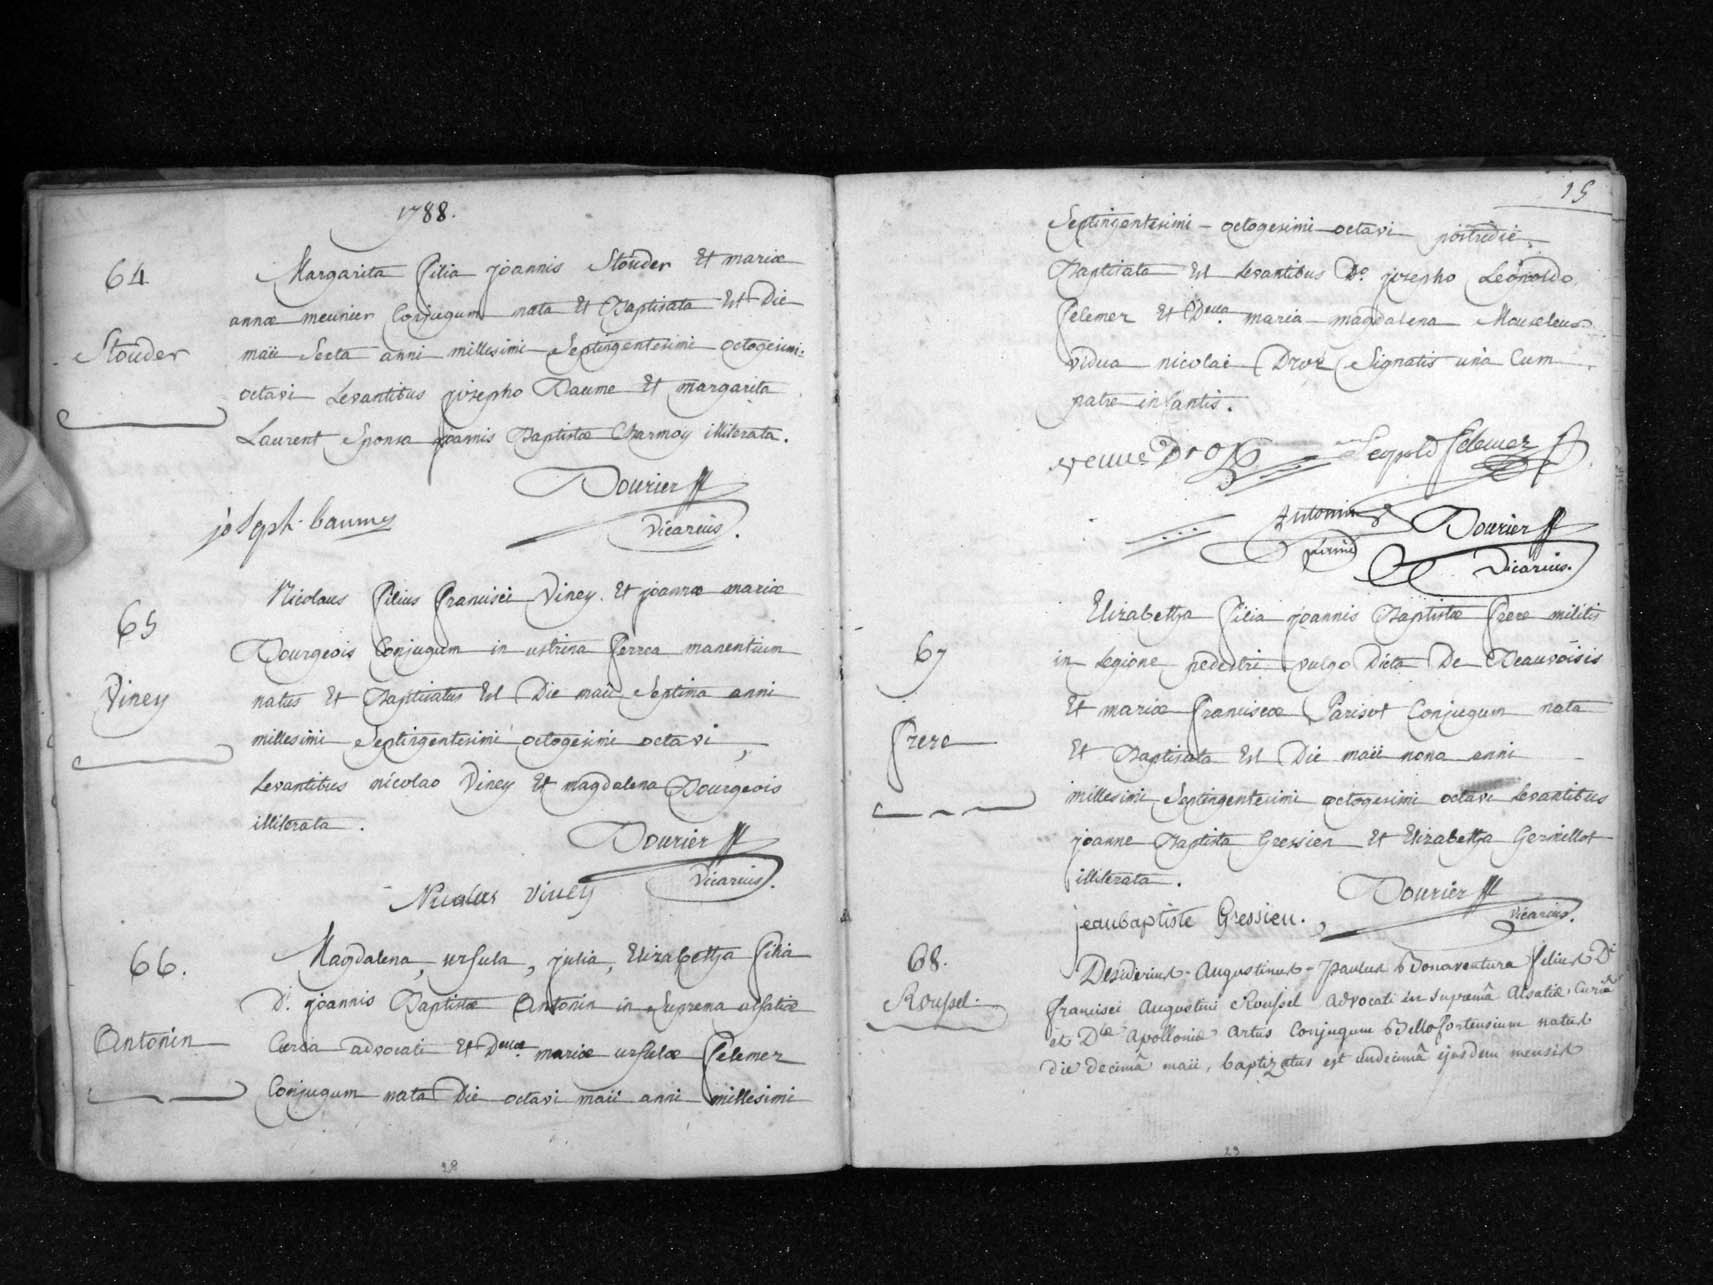 1788.
64
Stouder
Margarita filia joannis Stouder Et mariæ
annæ meunier Conjugum nata Et Baptisata Est Die
maii Sexta anni millesimi Septingentesimi octogesimi
octavi Levantibus josepho Baume Et margarita
Laurent Sponsa joannis Baptistæ Charmoy illiterata.
Bourier
joseph baume
Vicarius.
65
Viney
Nicolaus filius francisci Viney Et joannæ mariæ
Bourgeois Conjugum in ustrina ferrea manentium
natus Et Baptisatus Est Die maii Septima anni
millesimi Septingentesimi octogesimi octavi,
Levantibus nicolao Viney Et magdalena Bourgeois
illiterata.
Bourier
Vicarius.
Nicolas Viney
66.
Antonin
Magdalena, ursula, julia, Elizabetha filia
D. joannis Baptistæ Antonin in Suprema alsatiæ
Curia advocati Et Dcuæ mariæ ursulæ felemez
Conjugum nata Die octavi maii anni millesimi
28
15
Septingentesimi - octogesimi octavi postridie
Baptisata Est Levantibus Do. josepho Leopoldo
felemez Et Dcua maria magdalena
vidua nicolai Droz Signatis unà Cum
patre infantis.
veuve Droz Leopold felemez
Antonin Bourier
Vicarius.
67
frere
Elizabetha filia joannis Baptistæ frere militis
in Legione pedestri vulgo Dicta De Beauvoisis
Et mariæ franciscæ Parisot Conjugum nata
Et Baptisata Est Die maii nona anni
millesimi Septingentesimi octogesimi octavi Levantibus
joanne Baptista Gressien Et Elizabetha Germillot
illiterata.
Bourier
jeanbaptiste Gressien.
Vicarius.
68.
Roussel.
Desiderius - Augustinus - Paulus Bonaventura filius Di
francisci Augustini Roussel advocati in supremâ Alsatiæ Curiâ
et Dlæ Apolloniæ Artus Conjugum Bellofortensium natus
die decimâ maii, baptizatus est undecimâ ejusdem mensis
23